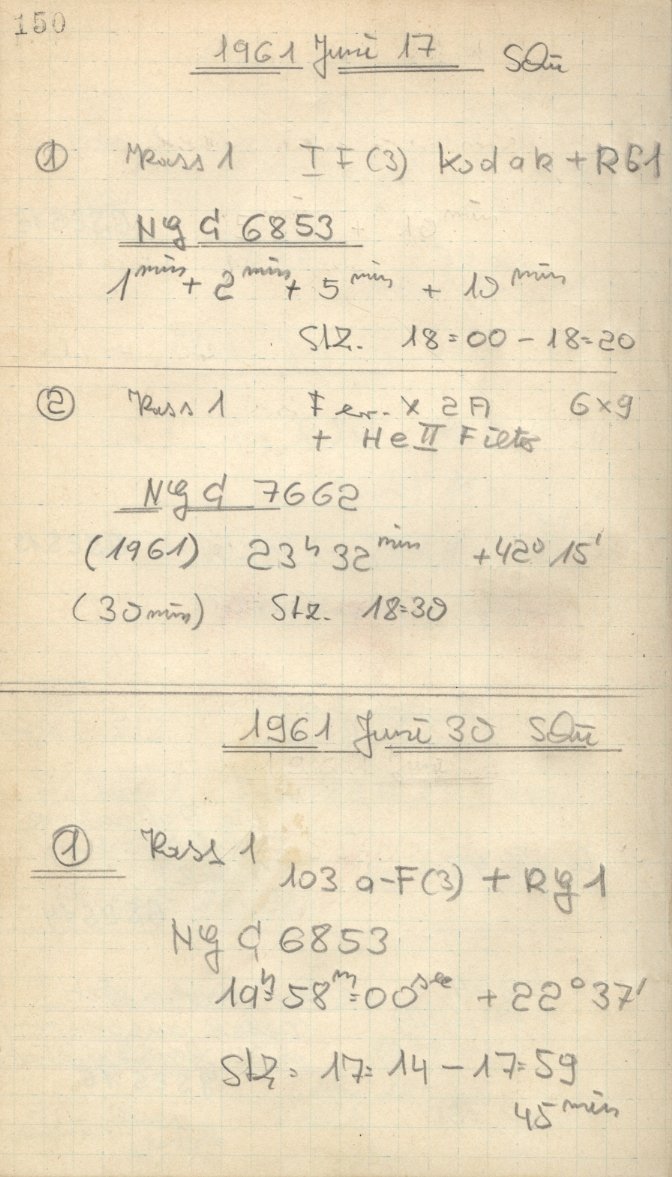 150
1961 Juni 17 SQu
① Kass 1 I F (3) Kodak + RG1
NGC 6853
1 min + 2 min + 5 min + 10 min
Stz. 18=00 - 18=20
② Kass 1 Fer. X 2A 6x9
+ He II Filter
NGC 7662
(1961) 23h 32min +42° 15'
(30 min) Stz. 18=30
1961 Juni 30 SQu
① Kass 1
103 a-F(3) + RG1
NGC 6853
19h=58m=00sec + 22° 37'
Stz = 17= 14 - 17=59
45 min